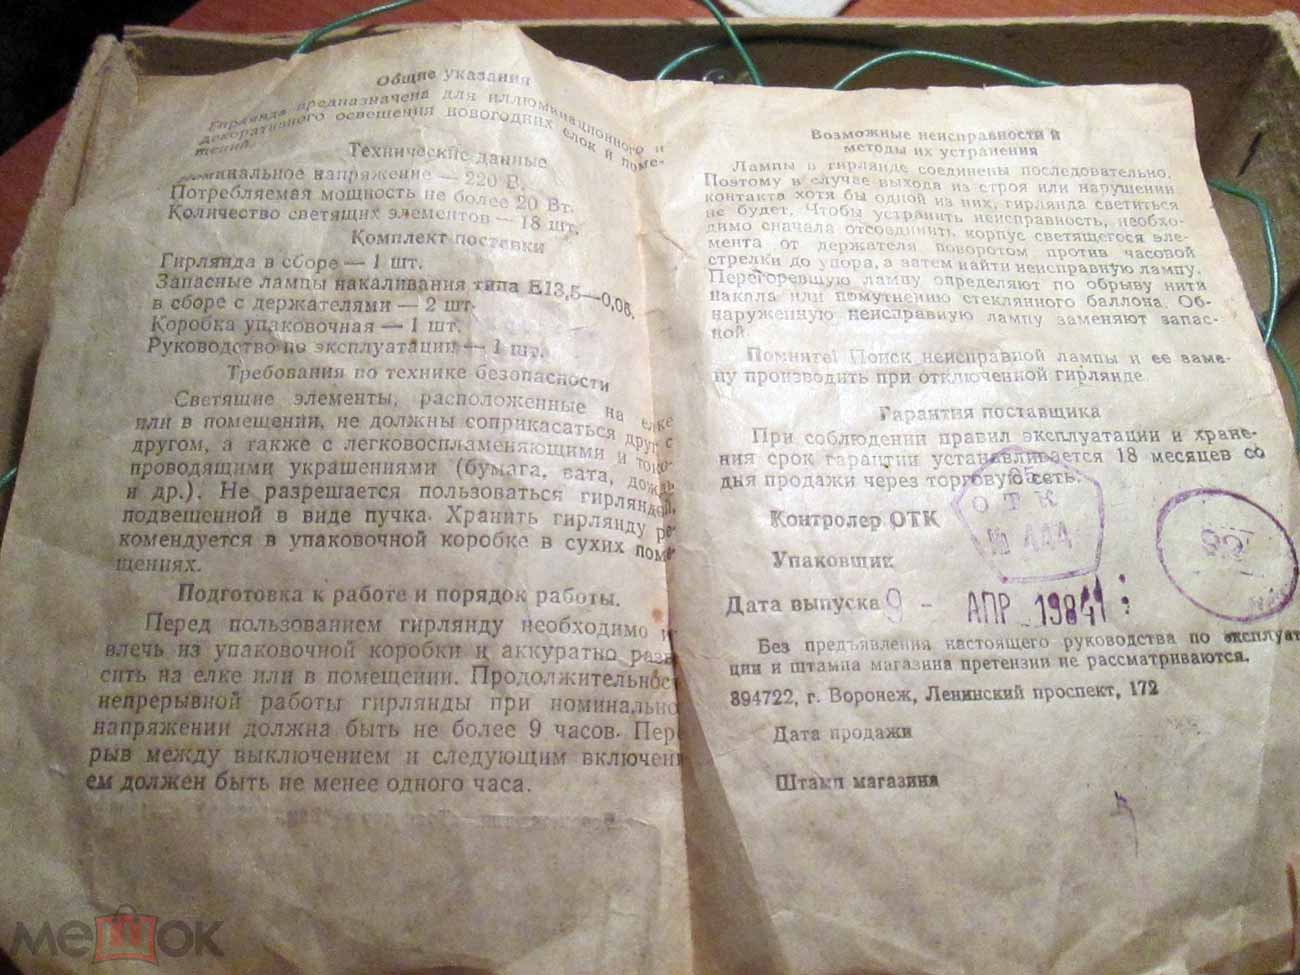 Общие указания
Гирлянда предназначена для иллюминационного и
декоративного освещения новогодних елок и поме-
щений.
Технические данные
минальное напряжение — 220 В.
Потребляемая мощность не более 20 Вт.
Количество светящих элементов — 18 шт.
Комплект поставки
Гирлянда в сборе — 1 шт.
Запасные лампы накаливания типа Е13,5—0,08.
в сборе с держателями — 2 шт.
Коробка упаковочная — 1 шт.
Руководство по эксплуатации — 1 шт.
Требования по технике безопасности
Светящие элементы, расположенные на елке
или в помещении, не должны соприкасаться друг с
другом, а также с легковоспламеняющими и токо-
проводящими украшениями (бумага, вата, дождь
и др.). Не разрешается пользоваться гирляндой,
подвешенной в виде пучка. Хранить гирлянду ре-
комендуется в упаковочной коробке в сухих поме-
щениях.
Подготовка к работе и порядок работы.
Перед пользованием гирлянду необходимо из
влечь из упаковочной коробки и аккуратно разве
сить на елке или в помещении. Продолжительност
непрерывной работы гирлянды при номинально
напряжении должна быть не более 9 часов. Пере
рыв между выключением и следующим включени
ем должен быть не менее одного часа.
Возможные неисправности и
методы их устранения
Лампы в гирлянде соединены последовательно.
Поэтому в случае выхода из строя или нарушении
контакта хотя бы одной из них, гирлянда светиться
не будет. Чтобы устранить неисправность, необхо-
димо сначала отсоединить корпус светящегося эле-
мента от держателя поворотом против часовой
стрелки до упора, а затем найти неисправную лампу.
Перегоревшую лампу определяют по обрыву нити
накала или помутнению стеклянного баллона. Об-
наруженную неисправную лампу заменяют запас-
ной.
Помните! Поиск неисправной лампы и ее заме-
ну производить при отключенной гирлянде.
Гарантия поставщика
При соблюдении правил эксплуатации и хране-
ния срок гарантии устанавливается 18 месяцев со
дня продажи через торговую сеть.
85
ОТК
№ 444
Контролер ОТК
Упаковщик
Дата выпуска 9 - АПР 1984
Без предъявления настоящего руководства по эксплуат
ции и штампа магазина претензии не рассматриваются.
894722, г. Воронеж, Ленинский проспект, 172
Дата продажи
Штамп магазина
мешок